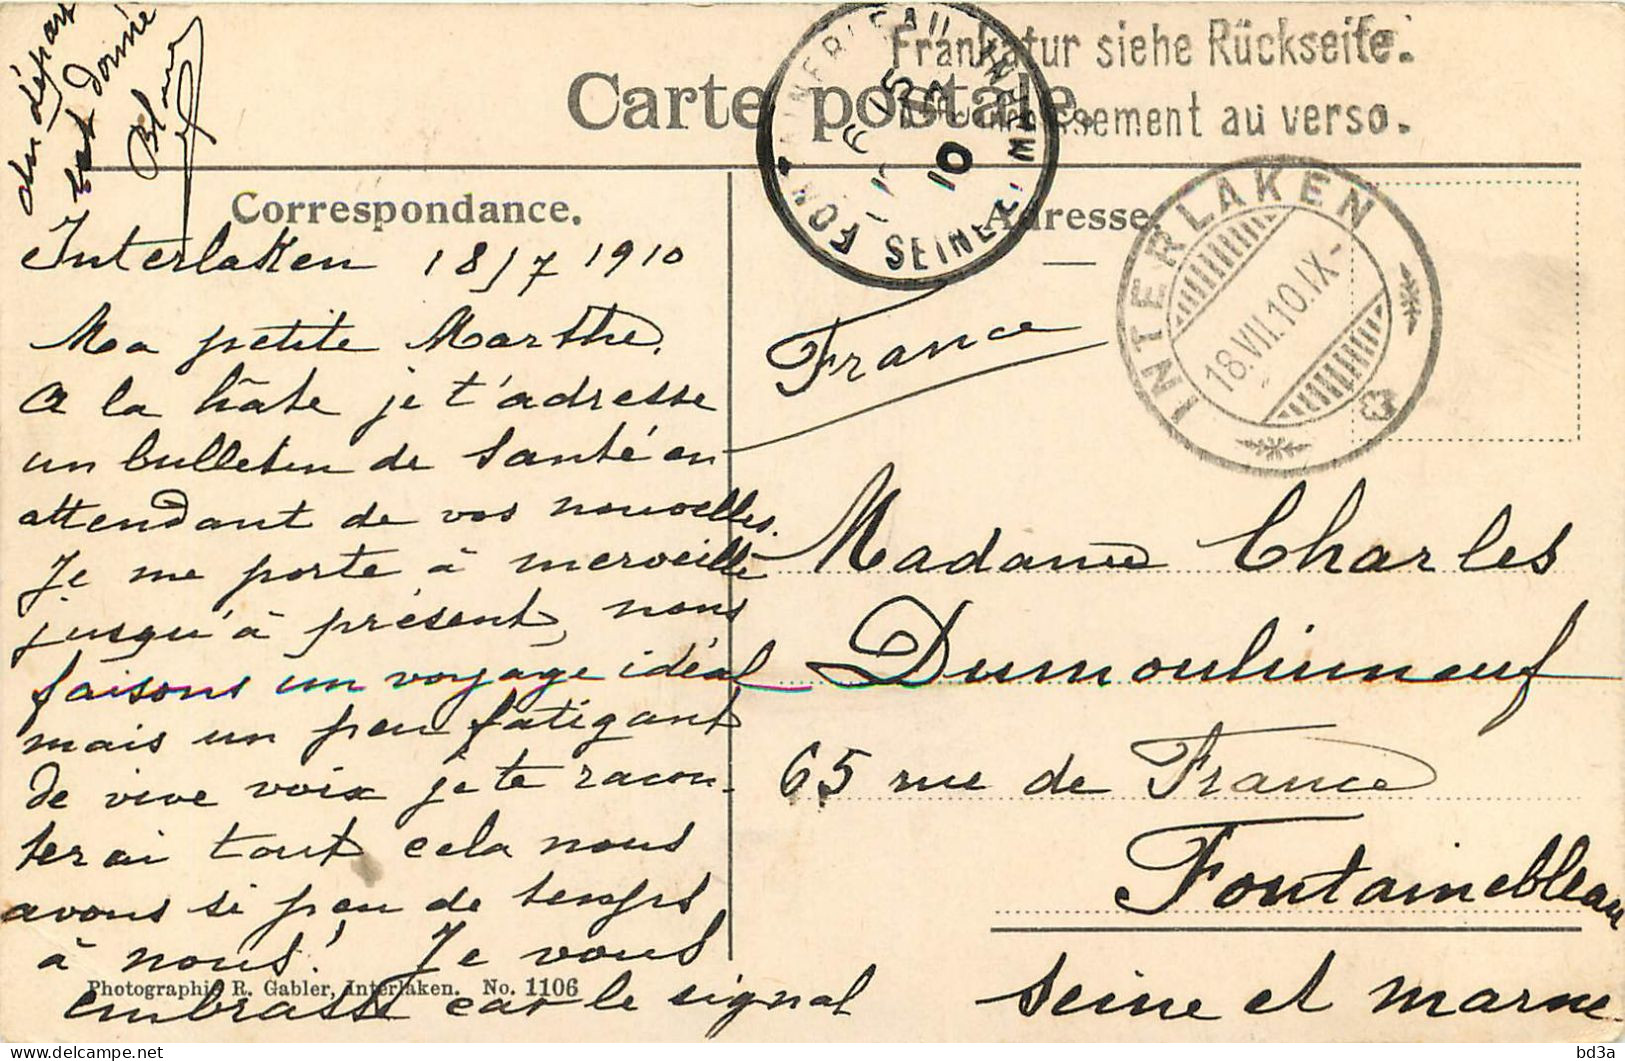 Frankatur siehe Rückseite.
Carte postale.
Affranchissement au verso.
Correspondance.
Adresse
INTERLAKEN
18.VII.10.IX-
SEINE
10
Interlaken 18/7 1910
Ma petite Marthe.
A la hâte je t'adresse
un bulletin de santé en
attendant de vos nouvelles.
Je me porte à merveille
jusqu'à présent, nous
faisons un voyage idéal
mais un peu fatigant
de vive voix je te racon-
terai tout cela nous
avons si peu de temps
à nous! Je vous
embrasse car le signal
du départ
est donné
Photographie R. Gabler, Interlaken. No. 1106
France
Madame Charles
Dumoulinneuf
65 rue de France
Fontainebleau
Seine et Marne
bd3a